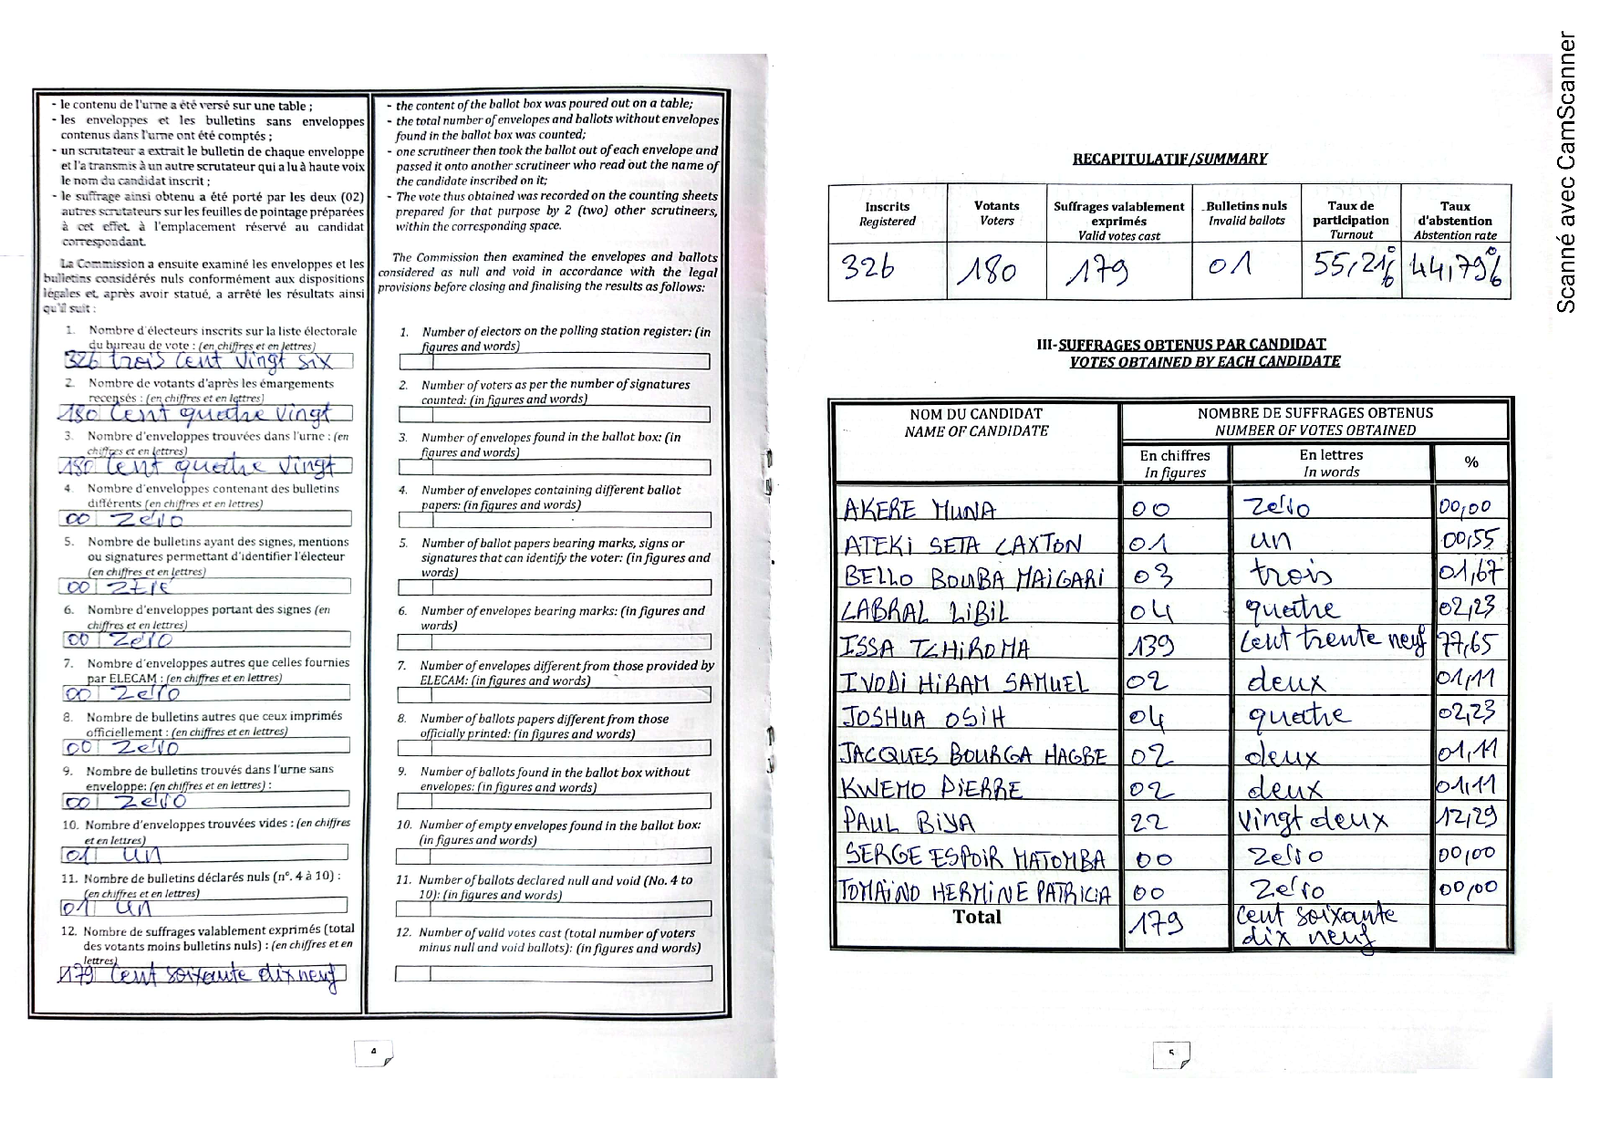 - le contenu de l'urne a été versé sur une table ;
- les enveloppes et les bulletins sans enveloppes
contenus dans l'urne ont été comptés ;
- un scrutateur a extrait le bulletin de chaque enveloppe
et l'a transmis à un autre scrutateur qui a lu à haute voix
le nom du candidat inscrit ;
- le suffrage ainsi obtenu a été porté par les deux (02)
autres scrutateurs sur les feuilles de pointage préparées
à cet effet à l'emplacement réservé au candidat
correspondant.
La Commission a ensuite examiné les enveloppes et les
bulletins considérés nuls conformément aux dispositions
légales et, après avoir statué, a arrêté les résultats ainsi
qu'il suit :
1. Nombre d'électeurs inscrits sur la liste électorale
du bureau de vote : (en chiffres et en lettres)
326 trois cent vingt six
2. Nombre de votants d'après les émargements
recensés : (en chiffres et en lettres)
180 cent quatre vingt
3. Nombre d'enveloppes trouvées dans l'urne : (en
chiffres et en lettres)
180 cent quatre vingt
4. Nombre d'enveloppes contenant des bulletins
différents (en chiffres et en lettres)
00 zéro
5. Nombre de bulletins ayant des signes, mentions
ou signatures permettant d'identifier l'électeur
(en chiffres et en lettres)
00
6. Nombre d'enveloppes portant des signes (en
chiffres et en lettres)
00 zéro
7. Nombre d'enveloppes autres que celles fournies
par ELECAM : (en chiffres et en lettres)
00 zéro
8. Nombre de bulletins autres que ceux imprimés
officiellement : (en chiffres et en lettres)
00 zéro
9. Nombre de bulletins trouvés dans l'urne sans
enveloppe: (en chiffres et en lettres) :
00 zéro
10. Nombre d'enveloppes trouvées vides : (en chiffres
et en lettres)
01 un
11. Nombre de bulletins déclarés nuls (n°. 4 à 10) :
(en chiffres et en lettres)
01 un
12. Nombre de suffrages valablement exprimés (total
des votants moins bulletins nuls) : (en chiffres et en
lettres)
179 cent soixante dix neuf
- the content of the ballot box was poured out on a table;
- the total number of envelopes and ballots without envelopes
found in the ballot box was counted;
- one scrutineer then took the ballot out of each envelope and
passed it onto another scrutineer who read out the name of
the candidate inscribed on it;
- The vote thus obtained was recorded on the counting sheets
prepared for that purpose by 2 (two) other scrutineers,
within the corresponding space.
The Commission then examined the envelopes and ballots
considered as null and void in accordance with the legal
provisions before closing and finalising the results as follows:
1. Number of electors on the polling station register: (in
figures and words)
2. Number of voters as per the number of signatures
counted: (in figures and words)
3. Number of envelopes found in the ballot box: (in
figures and words)
4. Number of envelopes containing different ballot
papers: (in figures and words)
5. Number of ballot papers bearing marks, signs or
signatures that can identify the voter: (in figures and
words)
6. Number of envelopes bearing marks: (in figures and
words)
7. Number of envelopes different from those provided by
ELECAM: (in figures and words)
8. Number of ballots papers different from those
officially printed: (in figures and words)
9. Number of ballots found in the ballot box without
envelopes: (in figures and words)
10. Number of empty envelopes found in the ballot box:
(in figures and words)
11. Number of ballots declared null and void (No. 4 to
10): (in figures and words)
12. Number of valid votes cast (total number of voters
minus null and void ballots): (in figures and words)
4
RECAPITULATIF/SUMMARY
Inscrits Registered | Votants Voters | Suffrages valablement exprimés Valid votes cast | Bulletins nuls Invalid ballots | Taux de participation Turnout | Taux d'abstention Abstention rate
326 180 179 01 55,21% 44,79%
III-SUFFRAGES OBTENUS PAR CANDIDAT
VOTES OBTAINED BY EACH CANDIDATE
NOM DU CANDIDAT NOMBRE DE SUFFRAGES OBTENUS
NAME OF CANDIDATE NUMBER OF VOTES OBTAINED
En chiffres En lettres %
In figures In words
AKERE MUNA 00 zéro 00,00
ATEKI SETA CAXTON 01 un 00,55
BELLO BOUBA MAIGARI 03 trois 01,67
CABRAL LIBIL 04 quatre 02,23
ISSA TCHIROMA 139 cent trente neuf 77,65
IYODI HIRAM SAMUEL 02 deux 01,11
JOSHUA OSIH 04 quatre 02,23
JACQUES BOURGA HAGBE 02 deux 01,11
KWEMO PIERRE 02 deux 01,11
PAUL BIYA 22 vingt deux 12,29
SERGE ESPOIR MATOMBA 00 zéro 00,00
TOMAINO HERMINE PATRICIA 00 zéro 00,00
Total 179 cent soixante
dix neuf
5
Scanné avec CamScanner